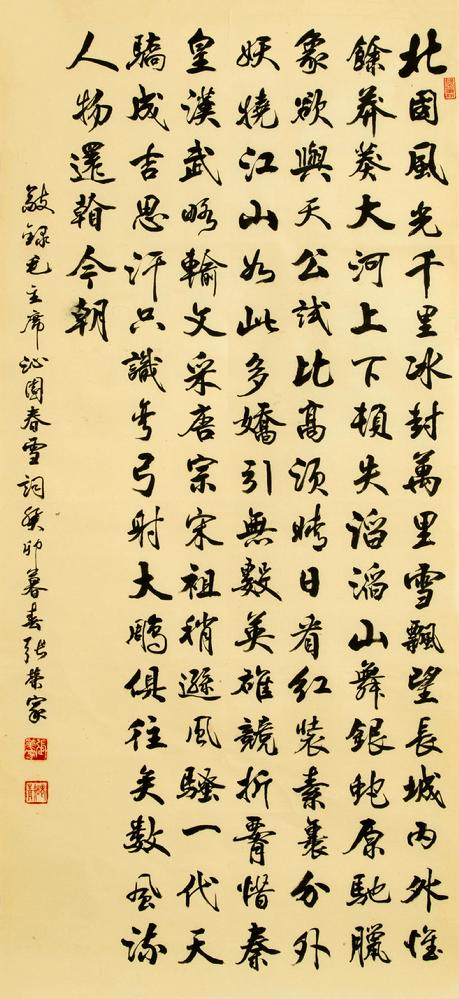 北國風光千里冰封萬里雪飄望長城内外惟
餘莽莽大河上下頓失滔滔山舞銀蛇原馳臘
象欲與天公試比高須晴日看紅裝素裹分外
妖嬈江山如此多嬌引無數英雄競折腰惜秦
皇漢武略輸文采唐宗宋祖稍遜風騷一代天
驕成吉思汗只識弯弓射大鵰俱往矣数風流
人物還看今朝
敬錄毛主席沁園春雪詞癸卯暮春張榮家